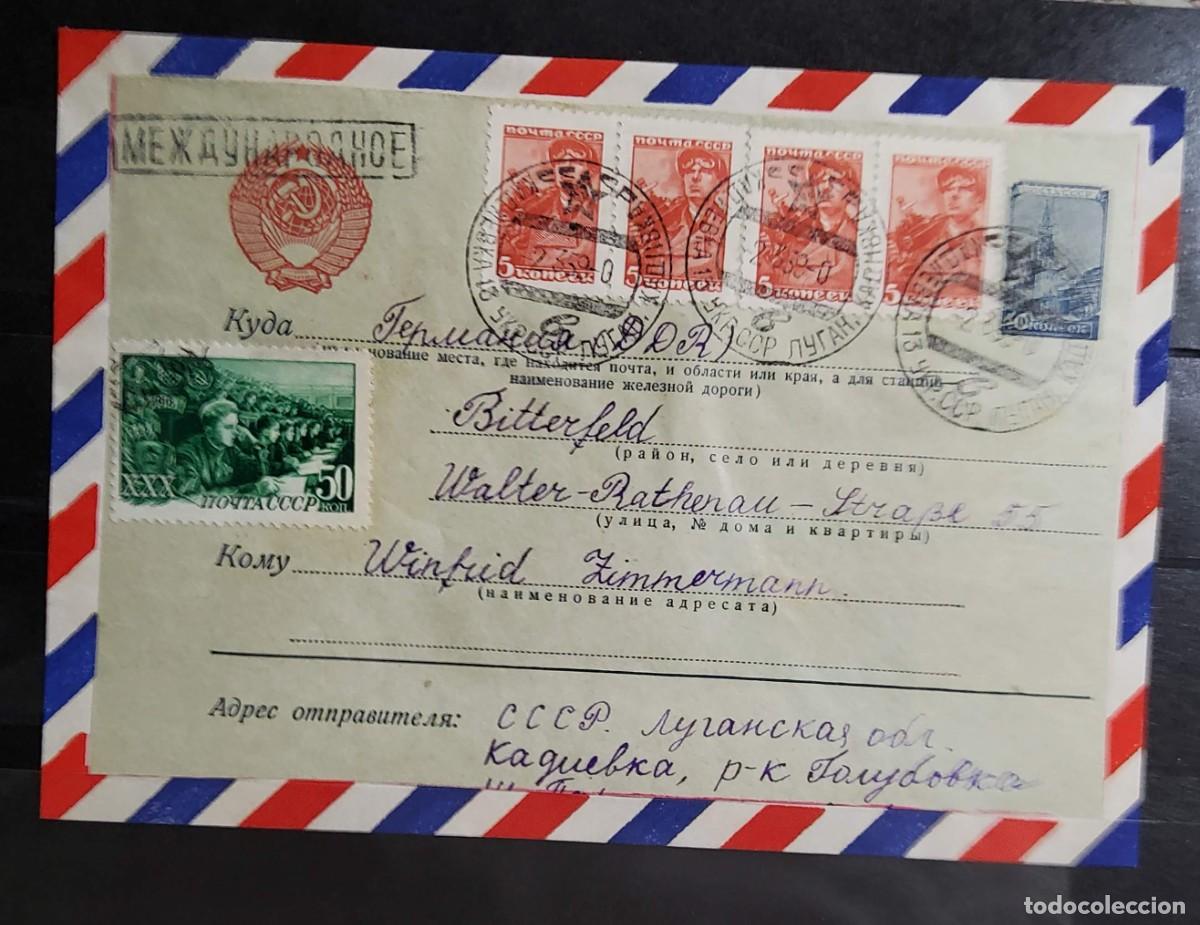 МЕЖДУНАРОДНОЕ
ПОЧТА СССР
5 копеек
ПОЧТА СССР
5 копеек
ПОЧТА СССР
5 копеек
ПОЧТА СССР
5 копеек
копеек
УКР. ССР ЛУГАН.
Куда Германия (DDR)
нование места, где находится почта, и области или края, а для станций
наименование железной дороги)
Bitterfeld
(район, село или деревня)
Walter-Rathenau-Straße 55
(улица, № дома и квартиры)
XXX ПОЧТА СССР 50 КОП
Кому Winfrid Zimmermann.
(наименование адресата)
Адрес отправителя: СССР. Луганская обл.
Кадиевка, р-к Голубовка
todocoleccion